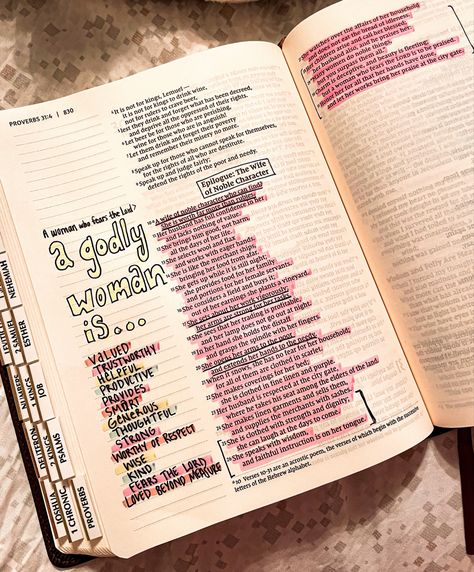 PROVERBS 31:4 | 830
4It is not for kings, Lemuel—
it is not for kings to drink wine,
not for rulers to crave beer,
5lest they drink and forget what has been decreed,
and deprive all the oppressed of their rights.
6Let beer be for those who are perishing,
wine for those who are in anguish!
7Let them drink and forget their poverty
and remember their misery no more.
8Speak up for those who cannot speak for themselves,
for the rights of all who are destitute.
9Speak up and judge fairly;
defend the rights of the poor and needy.
Epilogue: The Wife
of Noble Character
10a A wife of noble character who can find?
She is worth far more than rubies.
11Her husband has full confidence in her
and lacks nothing of value.
12She brings him good, not harm,
all the days of her life.
13She selects wool and flax
and works with eager hands.
14She is like the merchant ships,
bringing her food from afar.
15She gets up while it is still night;
she provides food for her family
and portions for her female servants.
16She considers a field and buys it;
out of her earnings she plants a vineyard.
17She sets about her work vigorously;
her arms are strong for her tasks.
18She sees that her trading is profitable,
and her lamp does not go out at night.
19In her hand she holds the distaff
and grasps the spindle with her fingers.
20She opens her arms to the poor
and extends her hands to the needy.
21When it snows, she has no fear for her household;
for all of them are clothed in scarlet.
22She makes coverings for her bed;
she is clothed in fine linen and purple.
23Her husband is respected at the city gate,
where he takes his seat among the elders of the land.
24She makes linen garments and sells them,
and supplies the merchants with sashes.
25She is clothed with strength and dignity;
she can laugh at the days to come.
26She speaks with wisdom,
and faithful instruction is on her tongue.
a 10 Verses 10-31 are an acrostic poem, the verses of which begin with the successive
letters of the Hebrew alphabet.
A woman who fears the Lord?
a godly
woman
is...
VALUED
TRUSTWORTHY
HELPFUL
PRODUCTIVE
PROVIDES
SMART
GENEROUS
THOUGHTFUL
STRONG
WORTHY OF RESPECT
WISE
KIND
FEARS THE LORD
LOVED BEYOND MEASURE
27She watches over the affairs of her household
and does not eat the bread of idleness.
28Her children arise and call her blessed;
her husband also, and he praises her:
29"Many women do noble things,
but you surpass them all."
30Charm is deceptive, and beauty is fleeting;
but a woman who fears the LORD is to be praised.
31Honor her for all that her hands have done,
and let her works bring her praise at the city gate.
NEHEMIAH
ESTHER
JOB
PSALMS
PROVERBS
2 SAMUEL
1 KINGS
2 KINGS
1 CHRONIC
NUMBERS
DEUTERON
JOSHUA